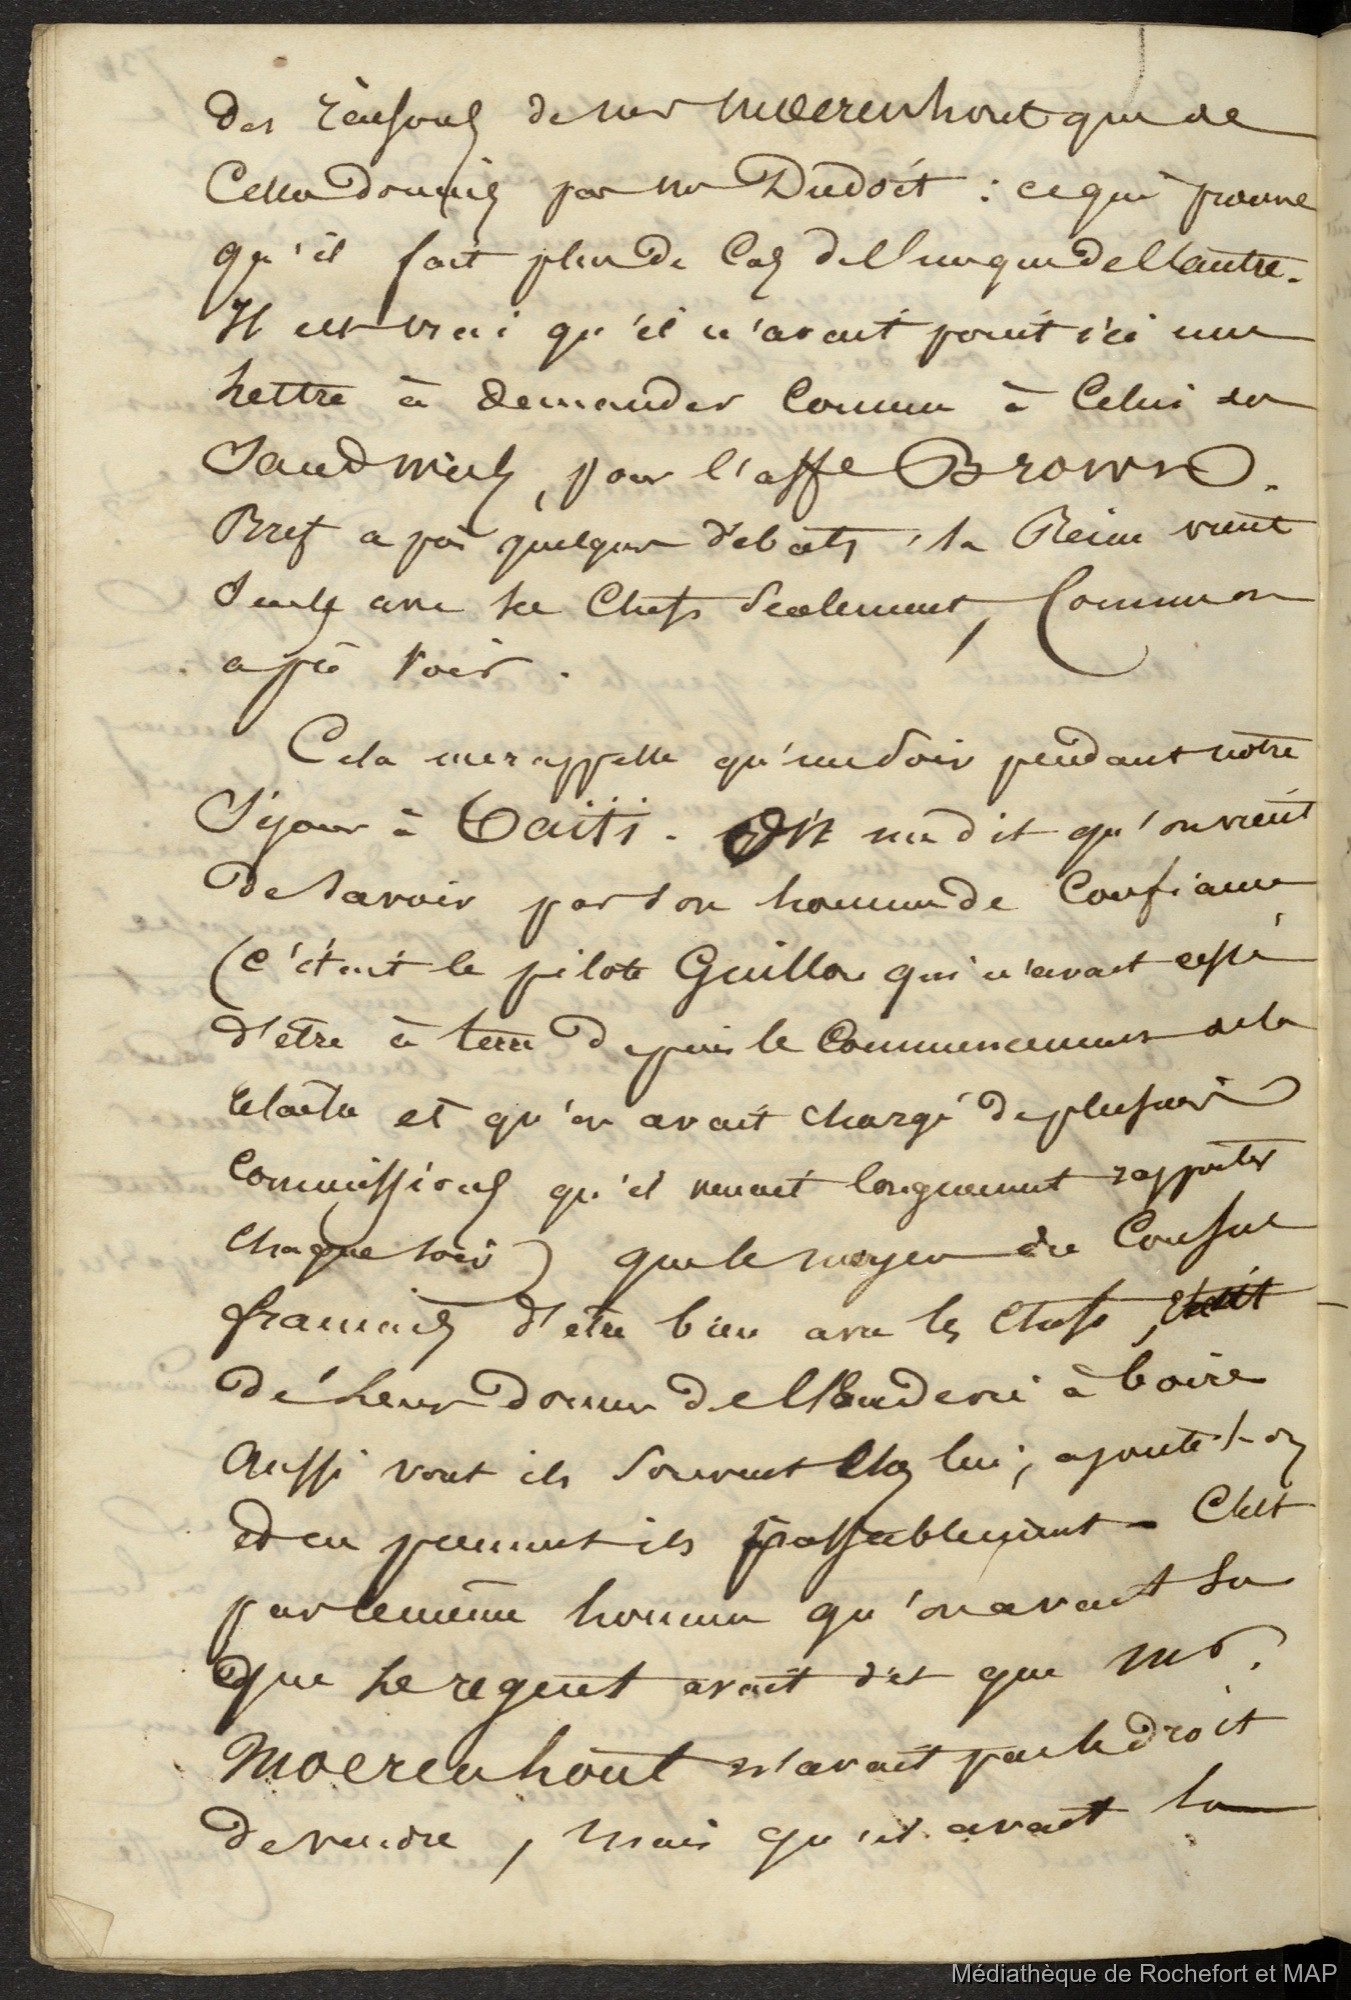 des raisons de mr Moerenhout que de
Celles données par mr Dudoit : ce qui prouve
qu'il fait plus de Cas de l'un que de l'autre.
Il est vrai qu'il n'avait point ici une
lettre à demander Comme à Celui des
Sandwich, pour l'affe Brown.
Bref après quelques débats, la Reine vient
Seule avec les Chefs Seulement, Comme on
a pû voir.
Cela me rappelle qu'un Soir pendant notre
Séjour à Taïti. me dit qu'on vient
de Savoir par Son homme de Confiance
(c'était le pilote Guillou qui n'avait cessé
d'être à terre Depuis le Commencement de la
relache et qu'on avait chargé de plusieurs
Commissions qu'il venait longuement rapporter
chaque soir) que le moyen du Consul
français d'être bien avec les Chefs, était
de leur Donner de l'Eau de vie à boire
Aussi vont ils Souvent Chez lui, ajoute-t-on
et en prennent ils passablement. C'est
par le même homme qu'on avait Su
que le regent avait dit que Mr.
Moerenhout n'avait pas le droit
de vendre, mais qu'il avait la